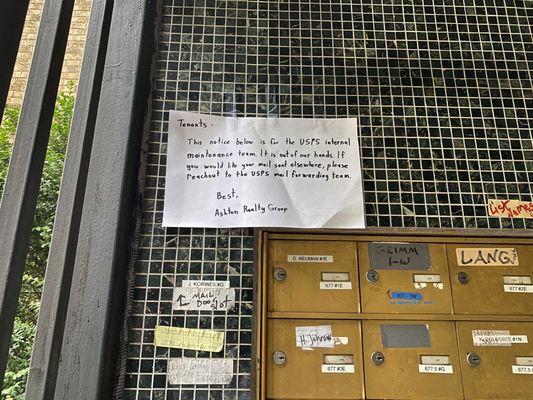 Tenants -
This notice below is for the USPS internal
maintenance team. It is out of our hands. If
you would like your mail sent elsewhere, please
reachout to the USPS mail forwarding team.
Best,
Ashton Realty Group
List names
D. NEUMAN #1E
677 #1E
GRIMM
1-W
677 - 1W
LANG.
677 #2E
J. KORINES #G
MAIL
DOOR
SLOT
H. Johnson
677 #3E
677.5 #G
677.5 #1N